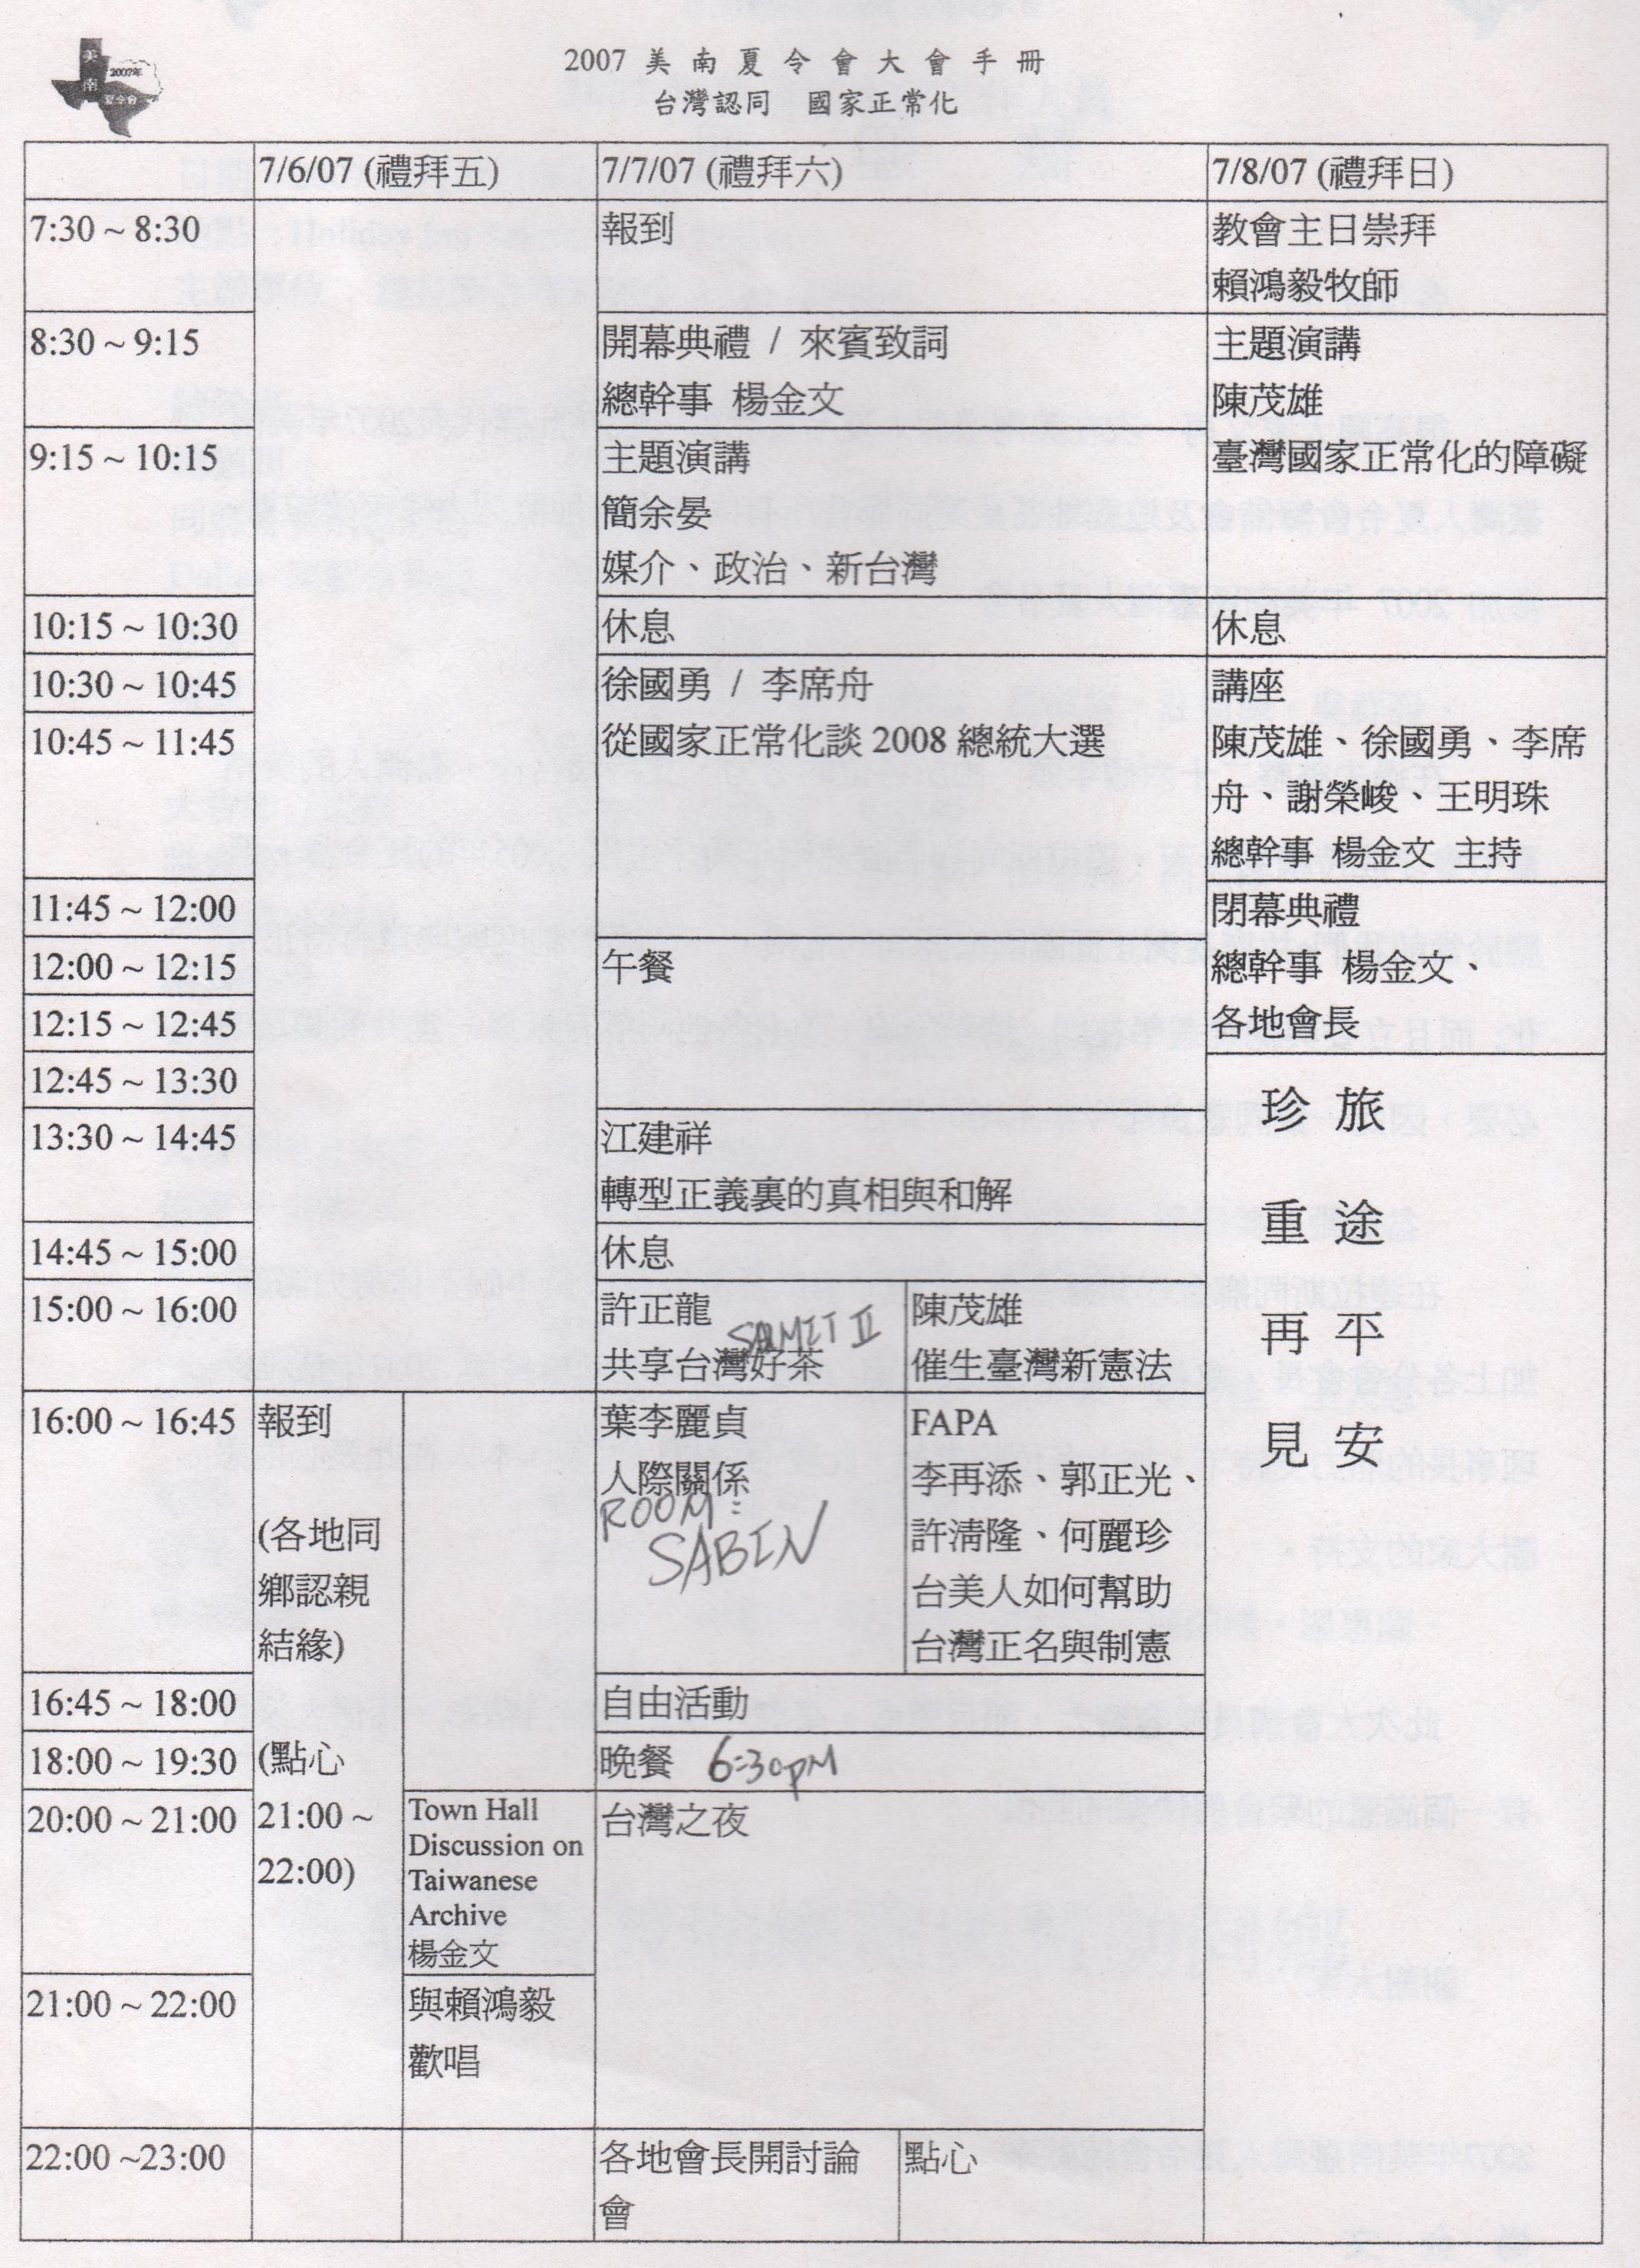 美
南
2007年
夏令會
2007 美 南 夏 令 會 大 會 手 冊
台灣認同 國家正常化
7/6/07 (禮拜五) 7/7/07 (禮拜六) 7/8/07 (禮拜日)
7:30 ~ 8:30 報到 教會主日崇拜
賴鴻毅牧師
8:30 ~ 9:15 開幕典禮 / 來賓致詞 主題演講
總幹事 楊金文 陳茂雄
9:15 ~ 10:15 主題演講 臺灣國家正常化的障礙
簡余晏
媒介、政治、新台灣
10:15 ~ 10:30 休息 休息
10:30 ~ 10:45 徐國勇 / 李席舟 講座
10:45 ~ 11:45 從國家正常化談 2008 總統大選 陳茂雄、徐國勇、李席
舟、謝榮峻、王明珠
總幹事 楊金文 主持
11:45 ~ 12:00 閉幕典禮
12:00 ~ 12:15 午餐 總幹事 楊金文、
12:15 ~ 12:45 各地會長
12:45 ~ 13:30
珍 旅
13:30 ~ 14:45 江建祥
轉型正義裏的真相與和解
重 途
14:45 ~ 15:00 休息
15:00 ~ 16:00 許正龍 陳茂雄
再 平
共享台灣好茶 催生臺灣新憲法
16:00 ~ 16:45 報到 葉李麗貞 FAPA
見 安
人際關係 李再添、郭正光、
ROOM:
(各地同 許淸隆、何麗珍
SABIN
鄉認親 台美人如何幫助
結緣) 台灣正名與制憲
16:45 ~ 18:00 自由活動
18:00 ~ 19:30 (點心 晚餐 6:30pM
20:00 ~ 21:00 21:00 ~ Town Hall 台灣之夜
Discussion on
22:00) Taiwanese
Archive
楊金文
21:00 ~ 22:00 與賴鴻毅
歡唱
22:00 ~23:00 各地會長開討論 點心
會